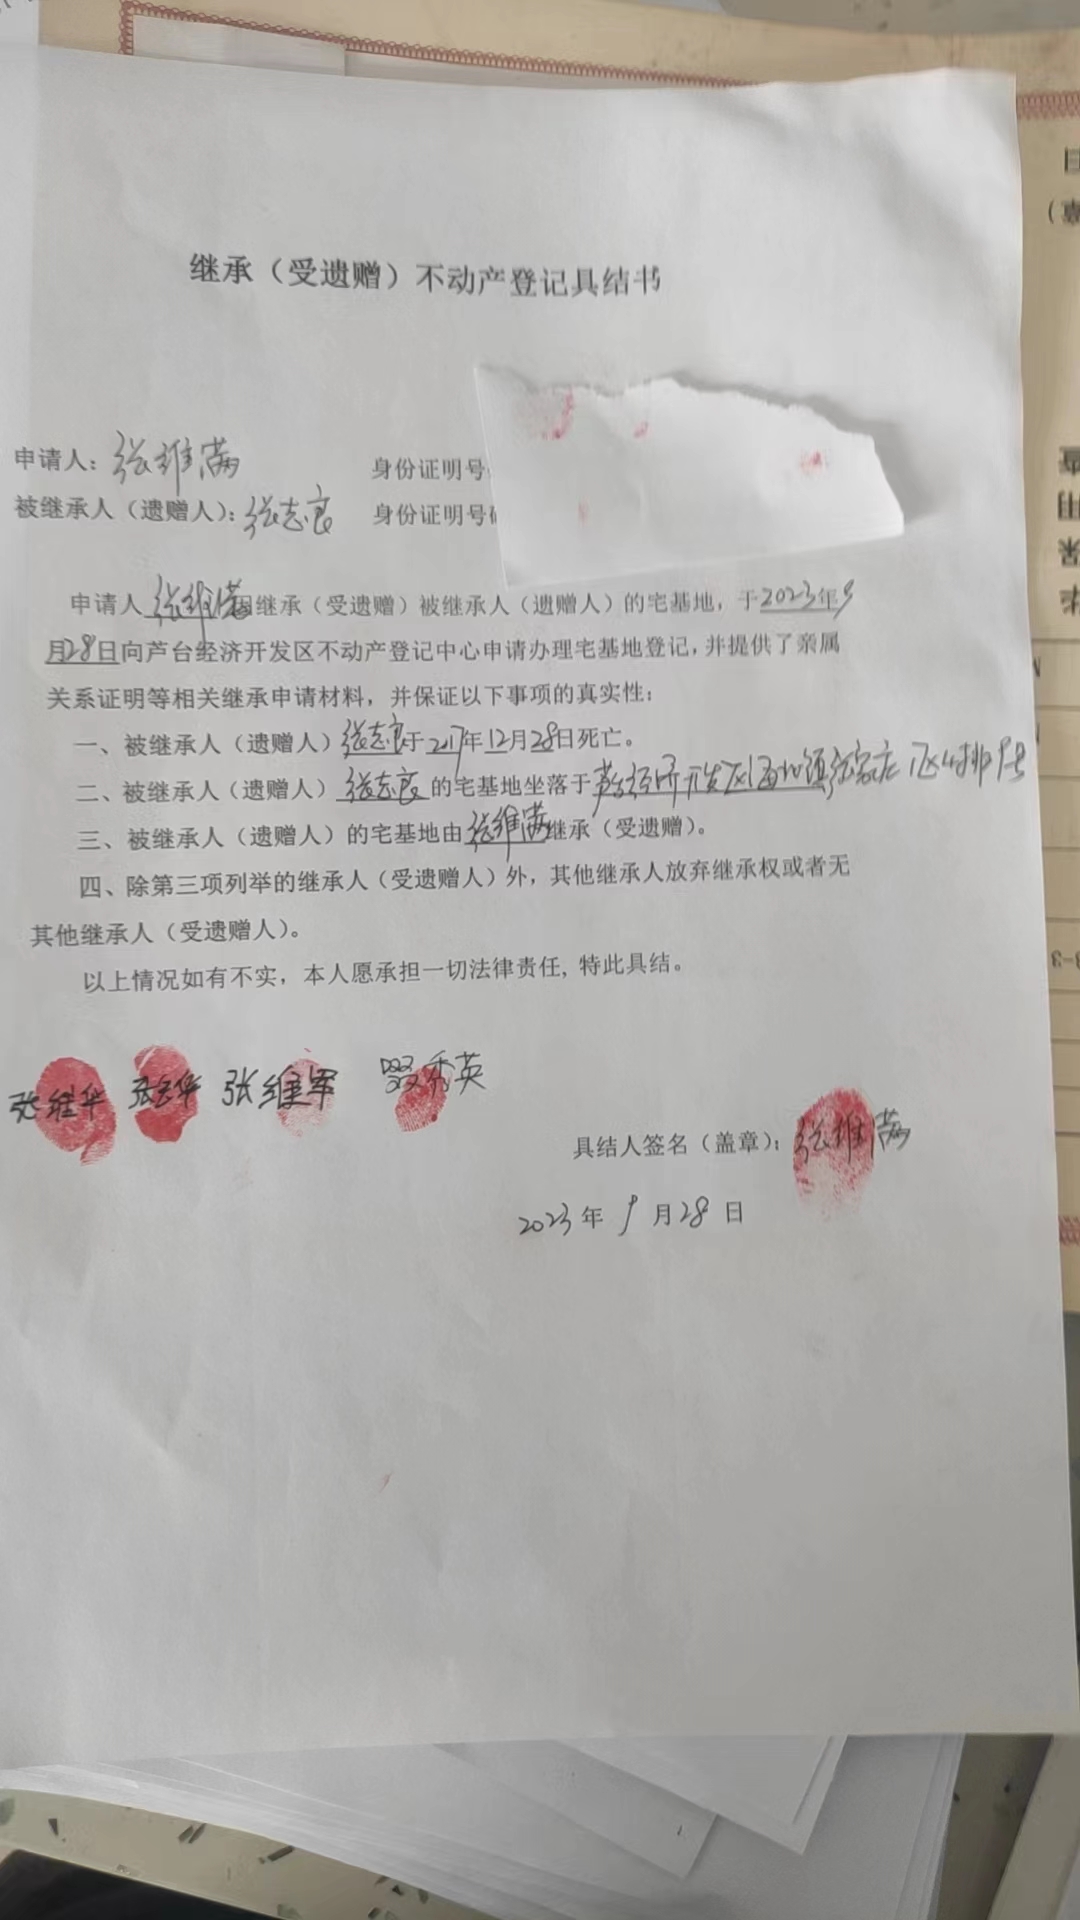 继承（受遗赠）不动产登记具结书
申请人：张维满 身份证明号
被继承人（遗赠人）：张志良 身份证明号
申请人张维满因继承（受遗赠）被继承人（遗赠人）的宅基地，于2023年9
月28日向芦台经济开发区不动产登记中心申请办理宅基地登记，并提供了亲属
关系证明等相关继承申请材料，并保证以下事项的真实性：
一、被继承人（遗赠人）张志良于2017年12月28日死亡。
二、被继承人（遗赠人）张志良的宅基地坐落于芦台经济开发区海北镇张家庄
三、被继承人（遗赠人）的宅基地由张维满继承（受遗赠）。
四、除第三项列举的继承人（受遗赠人）外，其他继承人放弃继承权或者无
其他继承人（受遗赠人）。
以上情况如有不实，本人愿承担一切法律责任，特此具结。
张维华 张云华 张维军 秀英
具结人签名（盖章）：张维满
2023年9月28日